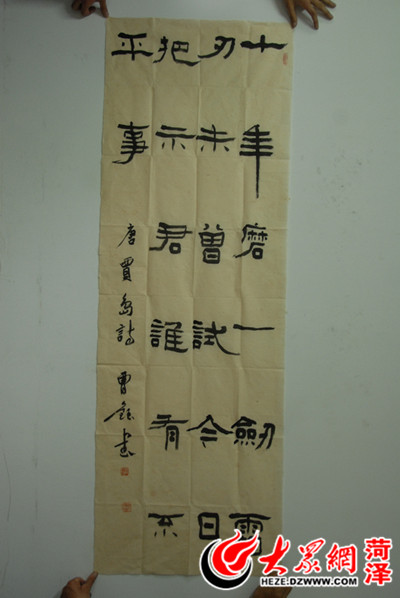 十年磨一劍霜
刃未曾試今日
把示君誰有不
平事
唐賈島詩 曹書
大眾網 菏泽
HEZE.DZWWW.COM